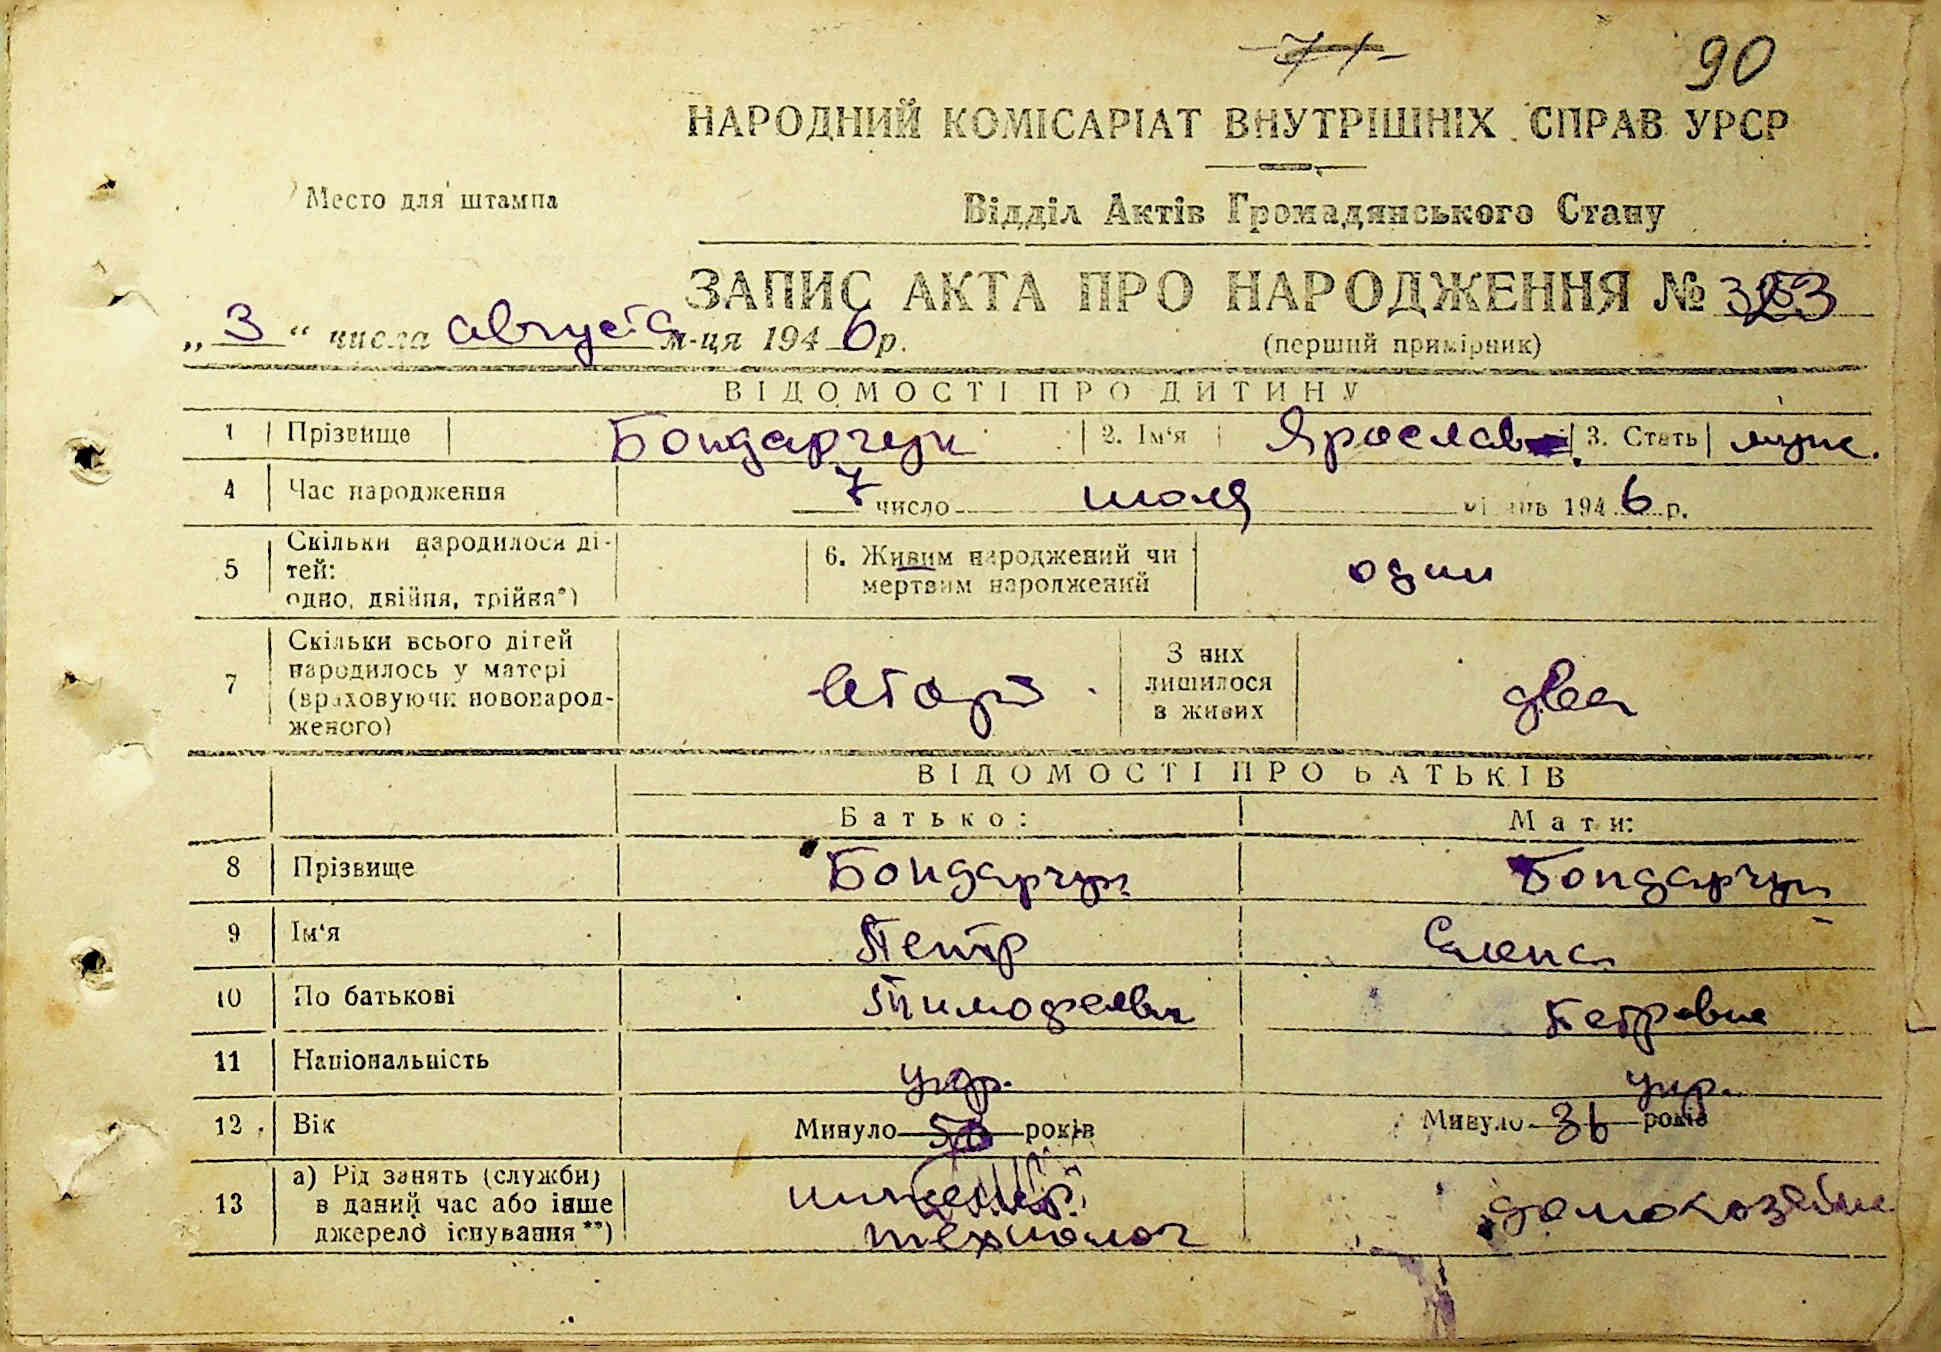 71 90
НАРОДНИЙ КОМІСАРІАТ ВНУТРІШНІХ СПРАВ УРСР
Место для штампа
Відділ Актів Громадянського Стану
ЗАПИС АКТА ПРО НАРОДЖЕННЯ №
„ 3 “ числа августа м-ця 1946 р.
(перший примірник)
ВІДОМОСТІ ПРО ДИТИНУ
1 Прізвище Бондарчук 2. Ім‘я Ярослав 3. Стать муж.
4 Час народження 7 число июля 1946 р.
5 Скільки народилося ді-
тей:
одно, двійня, трійня*)
6. Живим народжений чи
мертвим народжений
один
7 Скільки всього дітей
народилось у матері
(враховуючи новонарод-
женого)
втори
З них
лишилося
в живих
два
ВІДОМОСТІ ПРО БАТЬКІВ
Батько: Мати:
8 Прізвище Бондарчук Бондарчук
9 Ім‘я Петр Елена
10 По батькові Тимофеевич Петровна
11 Національність укр. укр.
12 Вік Минуло років Минуло 36 років
13 а) Рід занять (служби)
в даний час або інше
джерело існування **)
инженер
технолог
домохозяйка